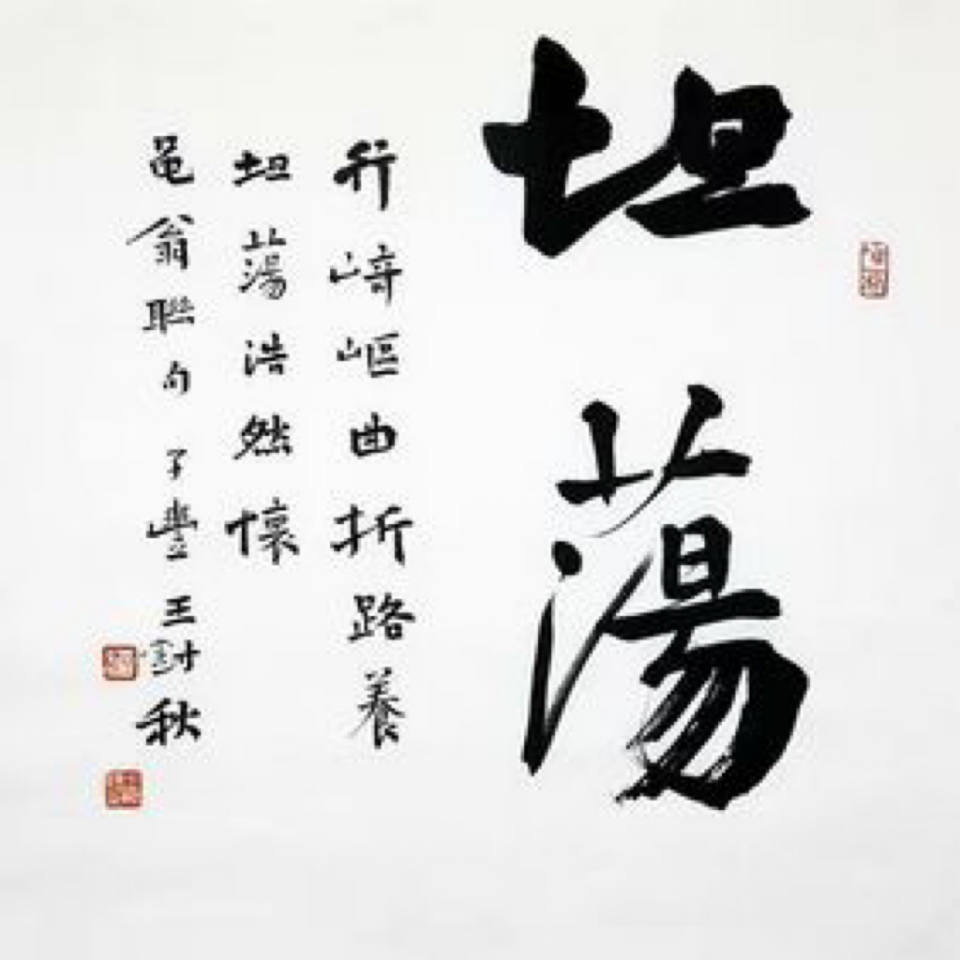 坦蕩
行崎嶇曲折路養
坦蕩浩然懷
黾翁聯句 子豐 王秋